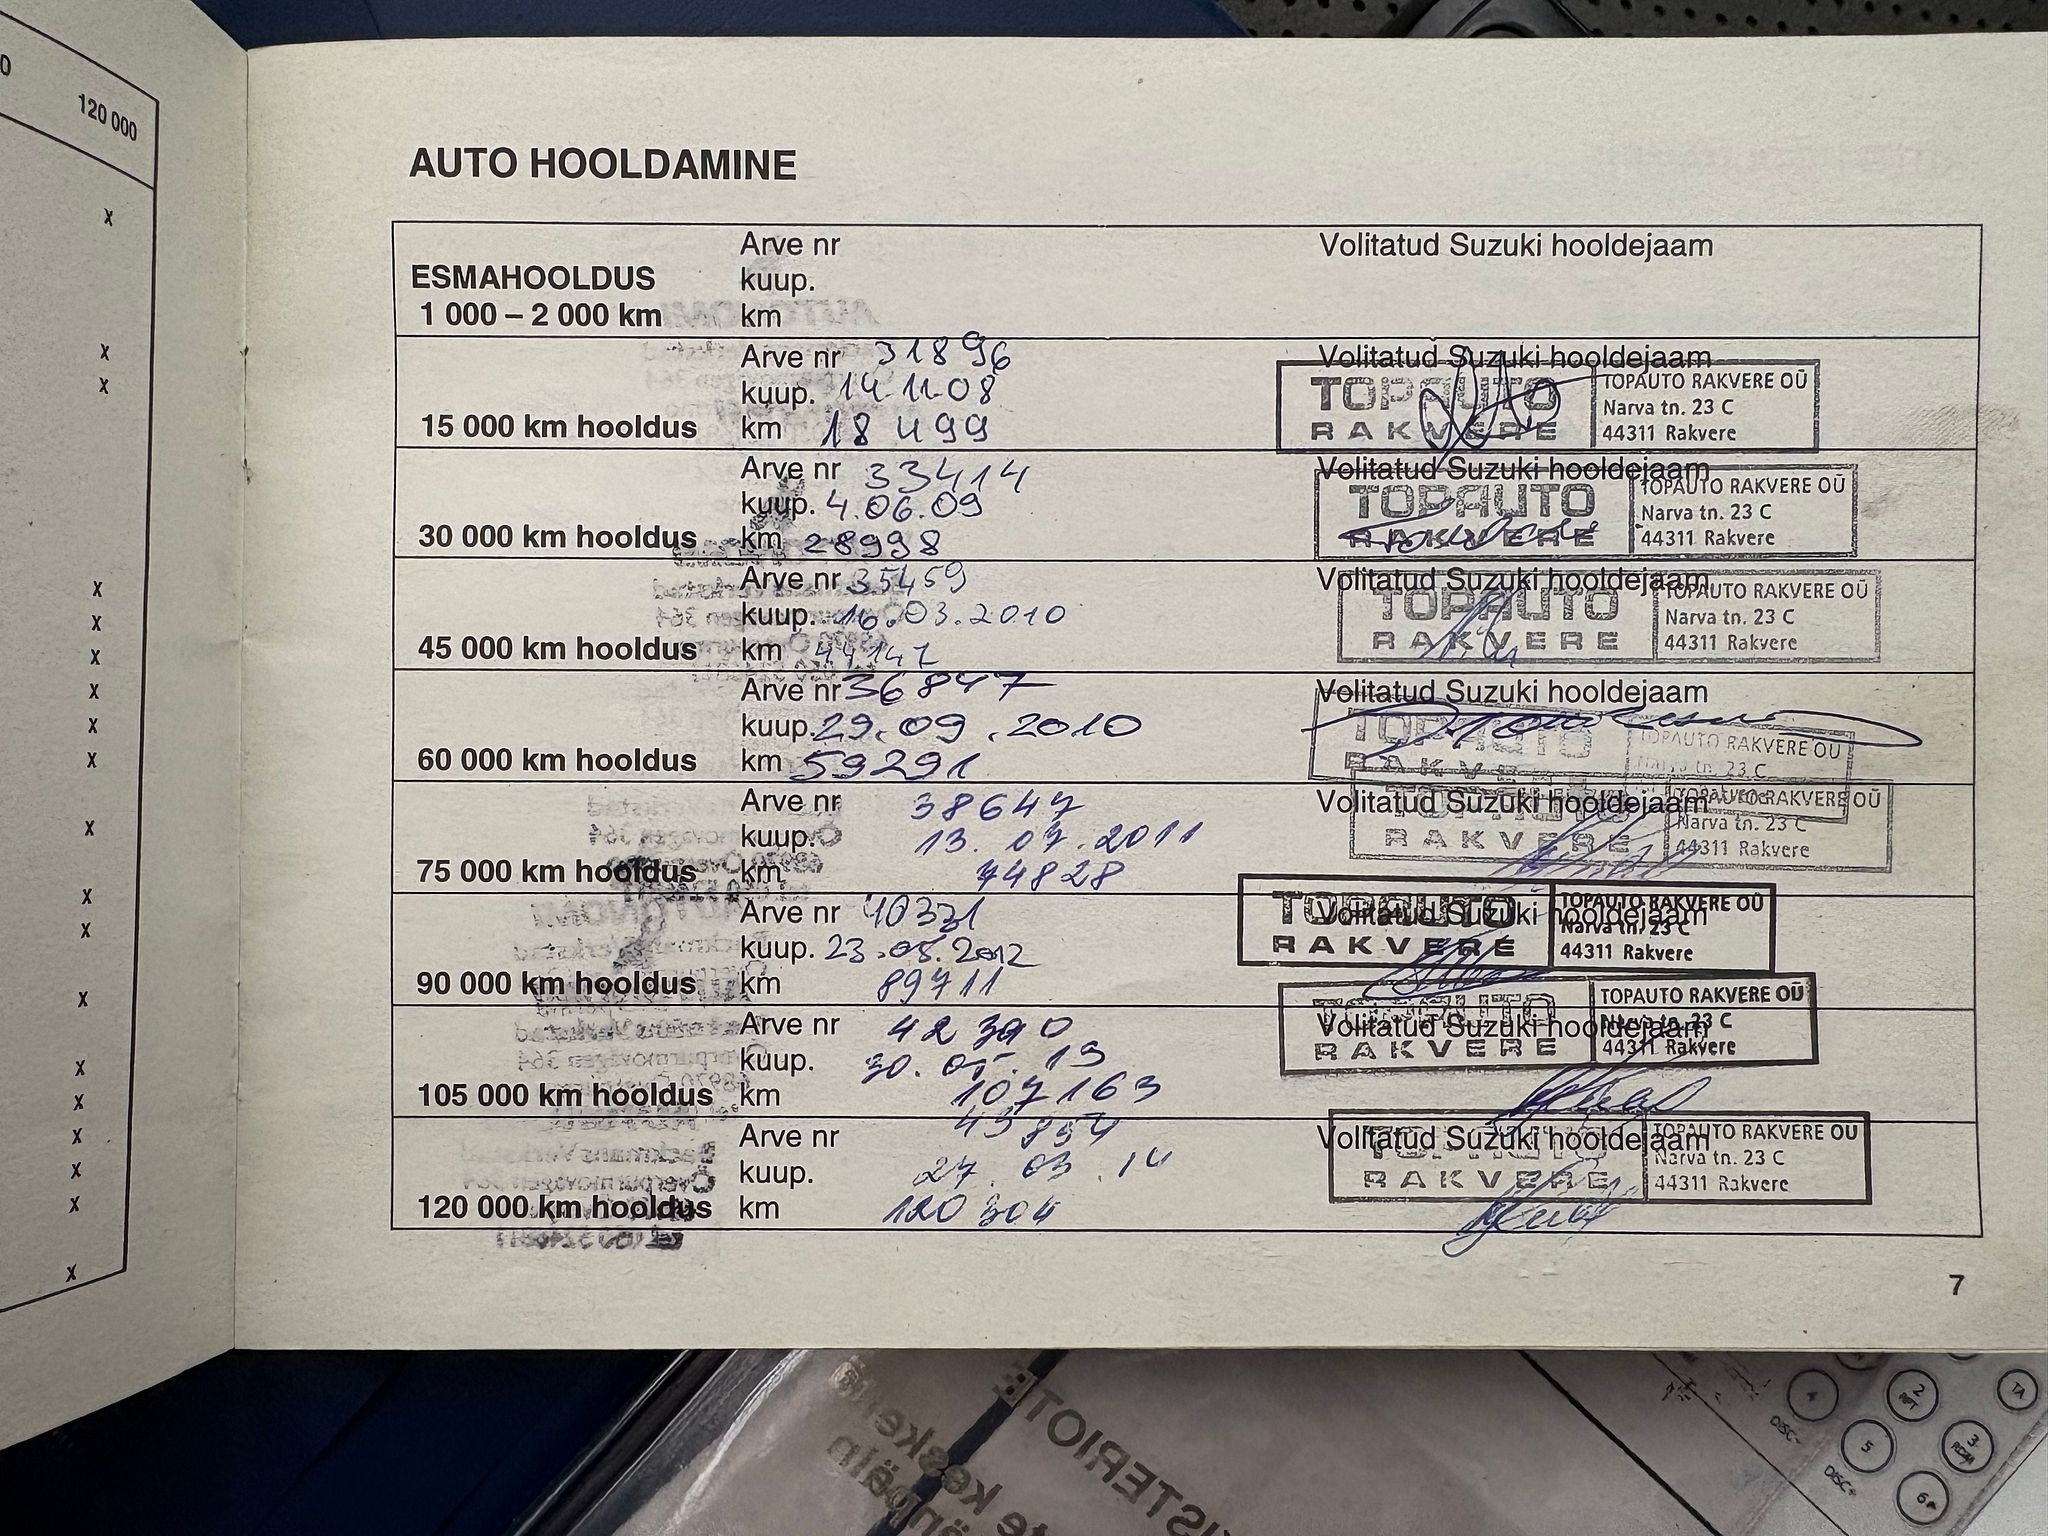 120 000
AUTO HOOLDAMINE
ESMAHOOLDUS
1 000 – 2 000 km
Arve nr
kuup.
km
Volitatud Suzuki hooldejaam
15 000 km hooldus
Arve nr 31896
kuup. 14.11.08
km 18499
Volitatud Suzuki hooldejaam
TOPAUTO RAKVERE
TOPAUTO RAKVERE OÜ
Narva tn. 23 C
44311 Rakvere
30 000 km hooldus
Arve nr 33414
kuup. 4.06.09
km 28998
Volitatud Suzuki hooldejaam
TOPAUTO RAKVERE
TOPAUTO RAKVERE OÜ
Narva tn. 23 C
44311 Rakvere
45 000 km hooldus
Arve nr 35459
kuup. 16.03.2010
km 44147
Volitatud Suzuki hooldejaam
TOPAUTO RAKVERE
TOPAUTO RAKVERE OÜ
Narva tn. 23 C
44311 Rakvere
60 000 km hooldus
Arve nr 36847
kuup. 29.09.2010
km 59291
Volitatud Suzuki hooldejaam
TOPAUTO RAKVERE
TOPAUTO RAKVERE OÜ
Narva tn. 23 C
75 000 km hooldus
Arve nr 38647
kuup. 13.07.2011
km 74828
Volitatud Suzuki hooldejaam
TOPAUTO RAKVERE
TOPAUTO RAKVERE OÜ
Narva tn. 23 C
44311 Rakvere
90 000 km hooldus
Arve nr 40331
kuup. 23.05.2012
km 89711
Volitatud Suzuki hooldejaam
TOPAUTO RAKVERE
TOPAUTO RAKVERE OÜ
Narva tn. 23 C
44311 Rakvere
105 000 km hooldus
Arve nr 42390
kuup. 30.05.13
km 107163
Volitatud Suzuki hooldejaam
TOPAUTO RAKVERE
TOPAUTO RAKVERE OÜ
Narva tn. 23 C
44311 Rakvere
120 000 km hooldus
Arve nr 43854
kuup. 27.03.14
km 120304
Volitatud Suzuki hooldejaam
TOPAUTO RAKVERE
TOPAUTO RAKVERE OÜ
Narva tn. 23 C
44311 Rakvere
7